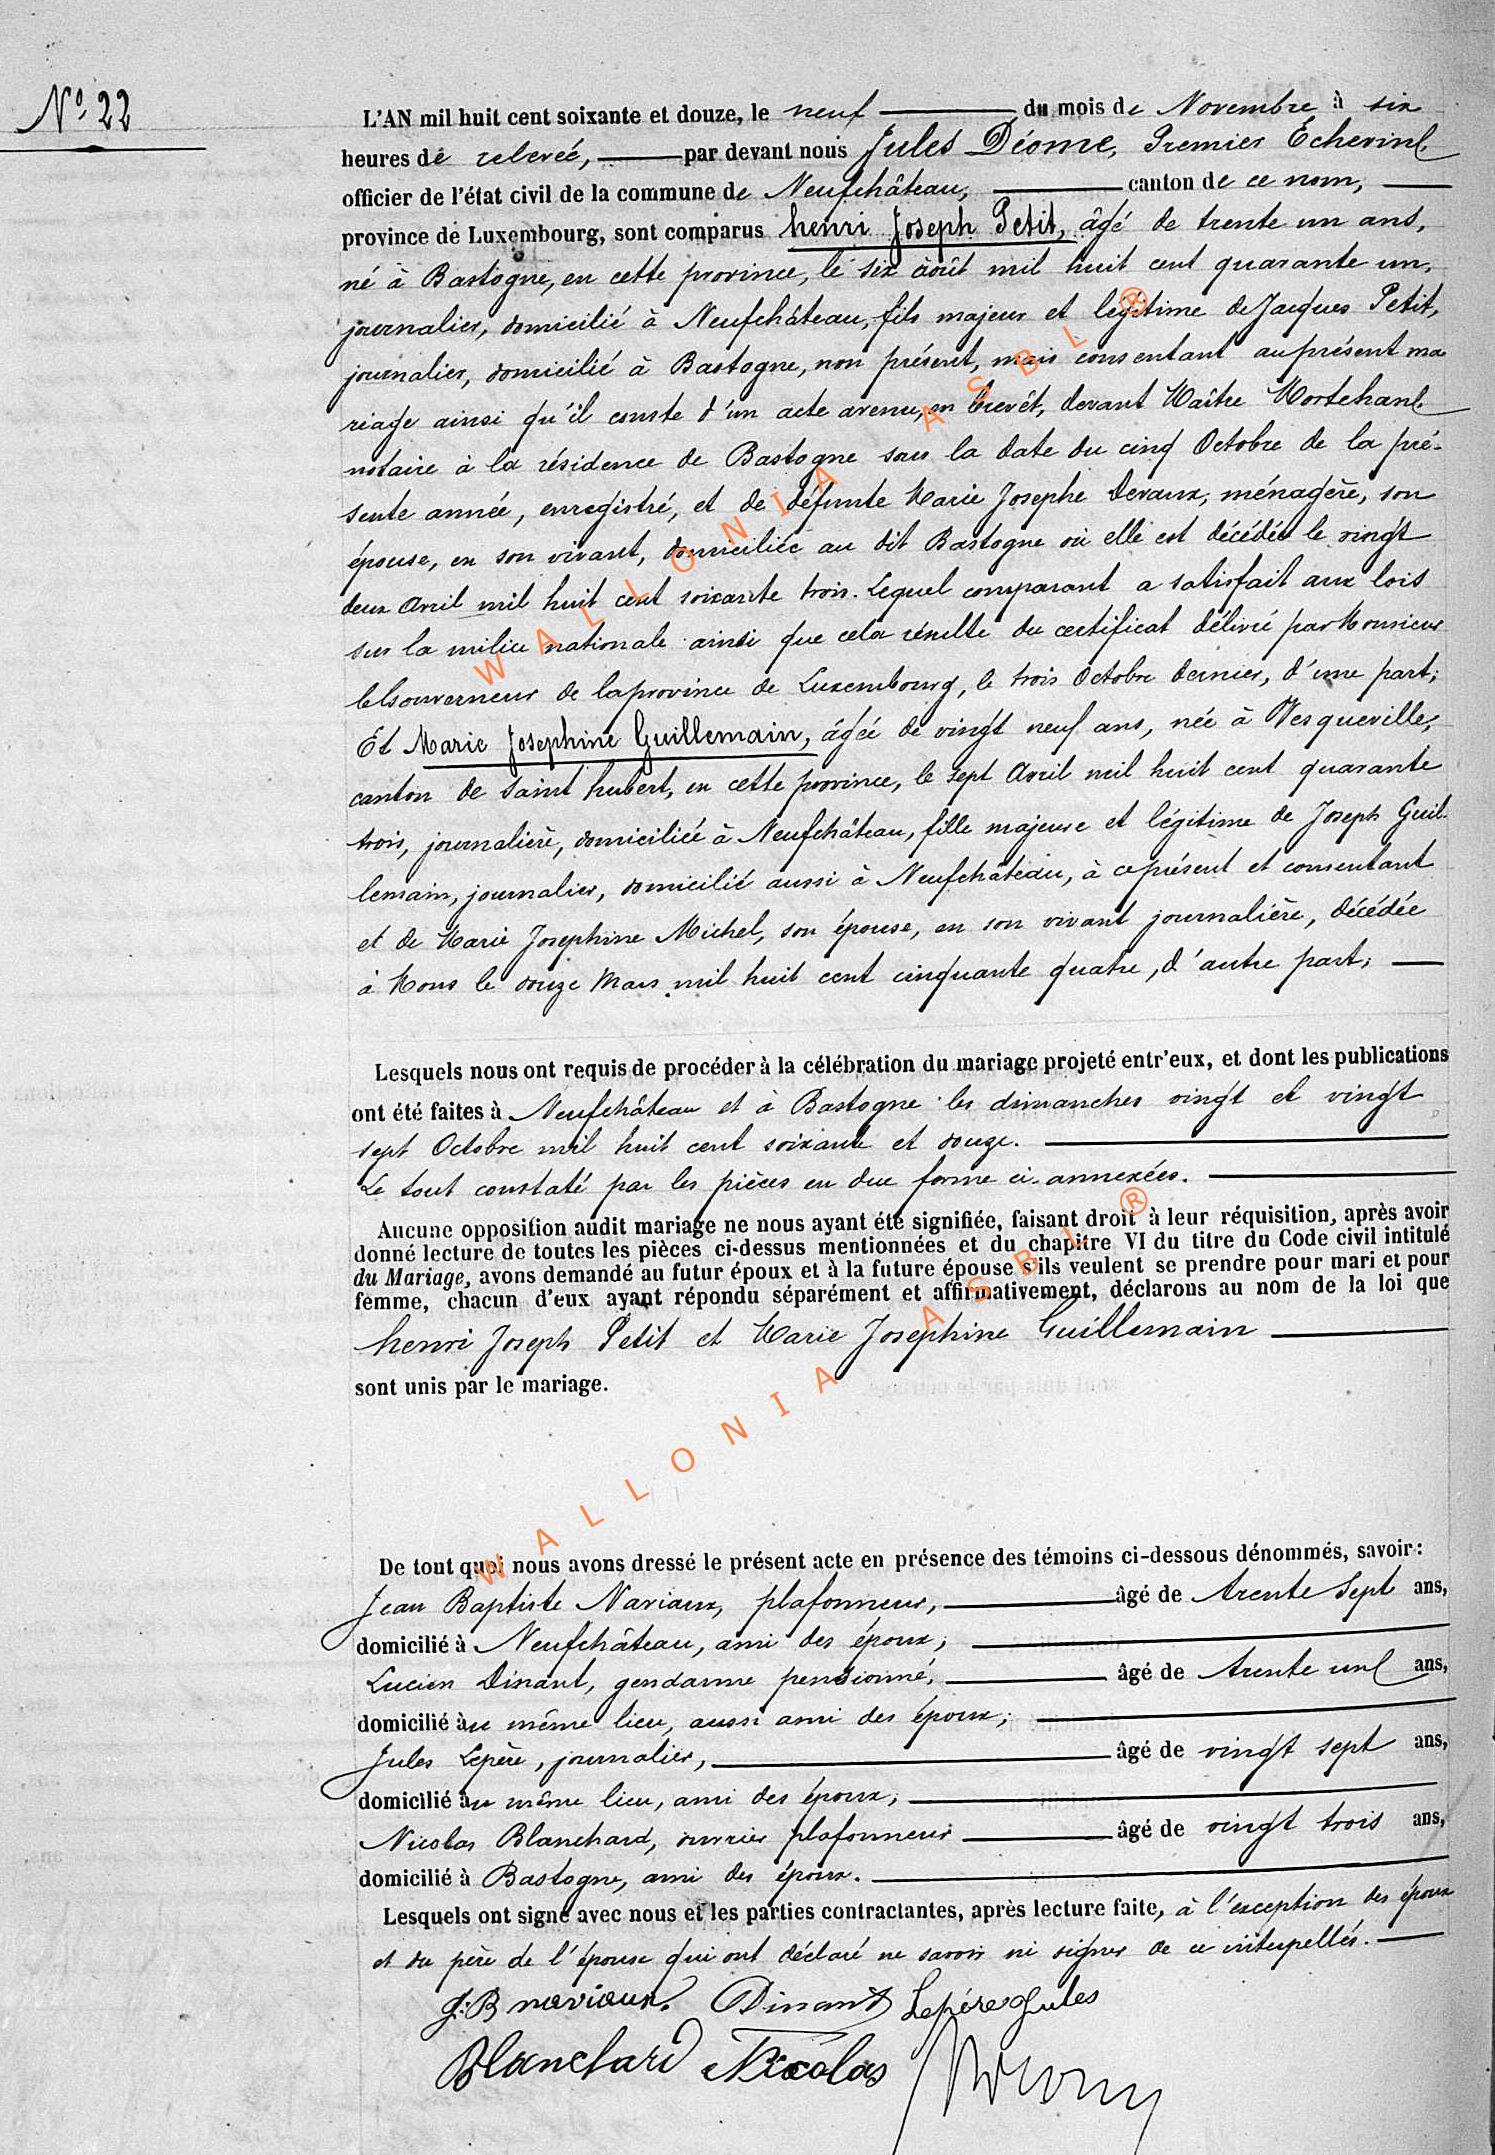 N° 22
L'AN mil huit cent soixante et douze, le neuf du mois de Novembre à six
heures de relevée, par devant nous Jules Déome, Premier Echevin
officier de l'état civil de la commune de Neufchâteau, canton de ce nom,
province de Luxembourg, sont comparus henri Joseph Petit, âgé de trente un ans,
né à Bastogne, en cette province, le six août mil huit cent quarante un,
journalier, domicilié à Neufchâteau, fils majeur et légitime de Jacques Petit,
journalier, domicilié à Bastogne, non présent, mais consentant au présent ma
riage ainsi qu'il conste d'un acte avenu, en brevêt, devant Maître Mortehan
notaire à la résidence de Bastogne sous la date du cinq Octobre de la pré-
sente année, enregistré, et de défunte Marie Josephe Devaux, ménagère, son
épouse, en son vivant, domiciliée au dit Bastogne où elle est décédée le vingt
deux Avril mil huit cent soixante trois. Lequel comparant a satisfait aux lois
sur la milice nationale ainsi que cela résulte du certificat délivré par Monsieur
le Gouverneur de la province de Luxembourg, le trois Octobre dernier, d'une part;
Et Marie Josephine Guillemain, âgée de vingt neuf ans, née à Vesqueville,
canton de saint hubert, en cette province, le sept Avril mil huit cent quarante
trois, journalière, domiciliée à Neufchâteau, fille majeure et légitime de Joseph Guil-
lemain, journalier, domicilié aussi à Neufchâteau, à ce présent et consentant
et de Marie Josephine Michel, son épouse, en son vivant journalière, décédée
à Mons le douze Mars mil huit cent cinquante quatre, d'autre part;
Lesquels nous ont requis de procéder à la célébration du mariage projeté entr'eux, et dont les publications
ont été faites à Neufchâteau et à Bastogne les dimanches vingt et vingt
sept Octobre mil huit cent soixante et douze.
Le tout constaté par les pièces en due forme ci-annexées.
Aucune opposition audit mariage ne nous ayant été signifiée, faisant droit à leur réquisition, après avoir
donné lecture de toutes les pièces ci-dessus mentionnées et du chapitre VI du titre du Code civil intitulé
du Mariage, avons demandé au futur époux et à la future épouse s'ils veulent se prendre pour mari et pour
femme, chacun d'eux ayant répondu séparément et affirmativement, déclarons au nom de la loi que
henri Joseph Petit et Marie Josephine Guillemain
sont unis par le mariage.
De tout quoi nous avons dressé le présent acte en présence des témoins ci-dessous dénommés, savoir :
Jean Baptiste Naviaux, plafonneur, âgé de trente sept ans,
domicilié à Neufchâteau, ami des époux;
Lucien Dinant, gendarme pensionné, âgé de trente un ans,
domicilié au même lieu, aussi ami des époux;
Jules Lepère, journalier, âgé de vingt sept ans,
domicilié au même lieu, ami des époux;
Nicolas Blanchard, ouvrier plafonneur âgé de vingt trois ans,
domicilié à Bastogne, ami des époux.
Lesquels ont signé avec nous et les parties contractantes, après lecture faite, à l'exception des époux
et du père de l'épouse qui ont déclaré ne savoir ni signer de ce interpellés.
J:B naviaux. Dinant Lepère Jules
Blanchard Nicolas
WALLONIA ASBL ®
WALLONIA ASBL ®